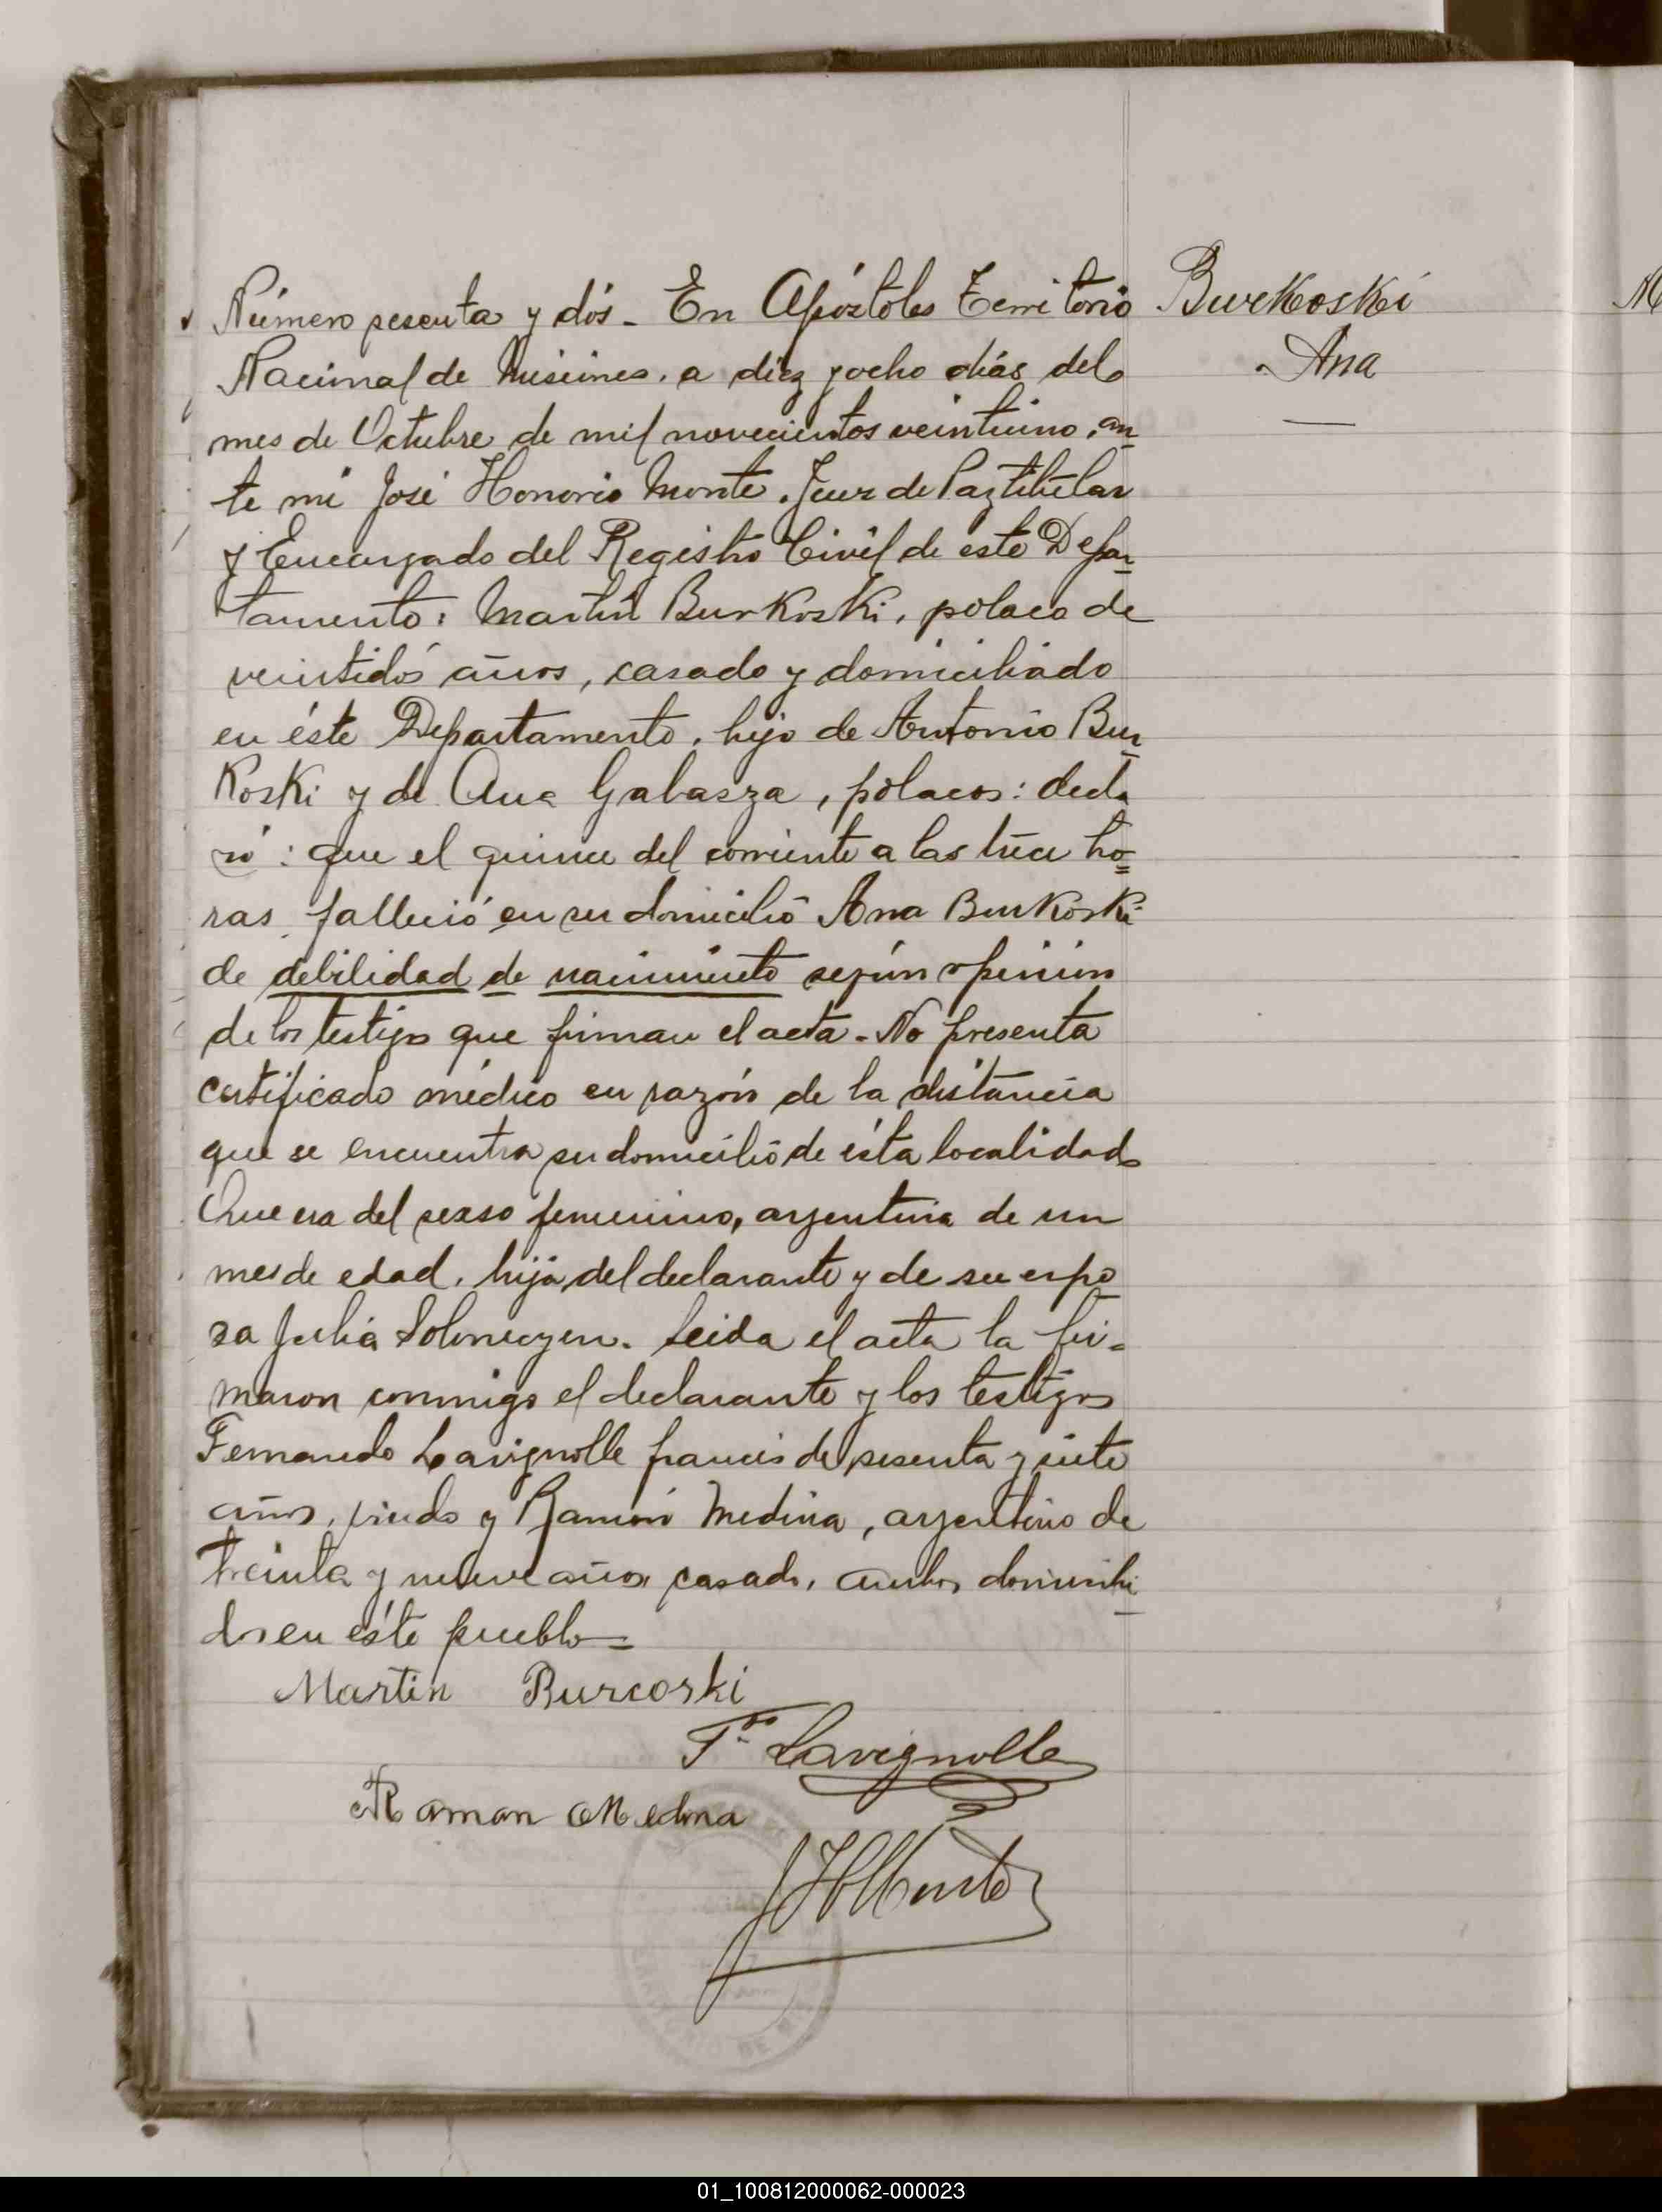 Número sesenta y dós - En Apóstoles Territorio
Nacional de Misiones, a diez y ocho dias del
mes de Octubre de mil novecientos veintiuno, an
te mi José Honorio Monte, Juez de Paz titular
y Encargado del Registro Civil de este Depar
tamento: Martin Burkoski, polaco de
veintidós años, casado y domiciliado
en éste Departamento, hijo de Antonio Bur
Koski y de Ana Gabasza, polacos: decla
ró: que el quince del corriente a las trece ho=
ras, falleció en su domicilio Ana Burkoski
de debilidad de nacimiento según opinion
de los testigos que firman el acta - No presenta
certificado médico en razón de la distancia
que se encuentra su domicilio de ésta localidad
Que era del sexso femenino, argentina de un
mes de edad, hija del declarante y de su espo
sa Julia. Leida el acta la fir=
maron conmigo el declarante y los testigos
Fernando Lavignolle francés de sesenta y siete
años, viudo y Ramón Medina, argentino de
treinta y nueve años, casado, ambos domicilia
dos en éste pueblo=
Martin Burcoski
F. Lavignolle
Raman Medina
JHMonte
Burkoski
Ana
01_100812000062-000023